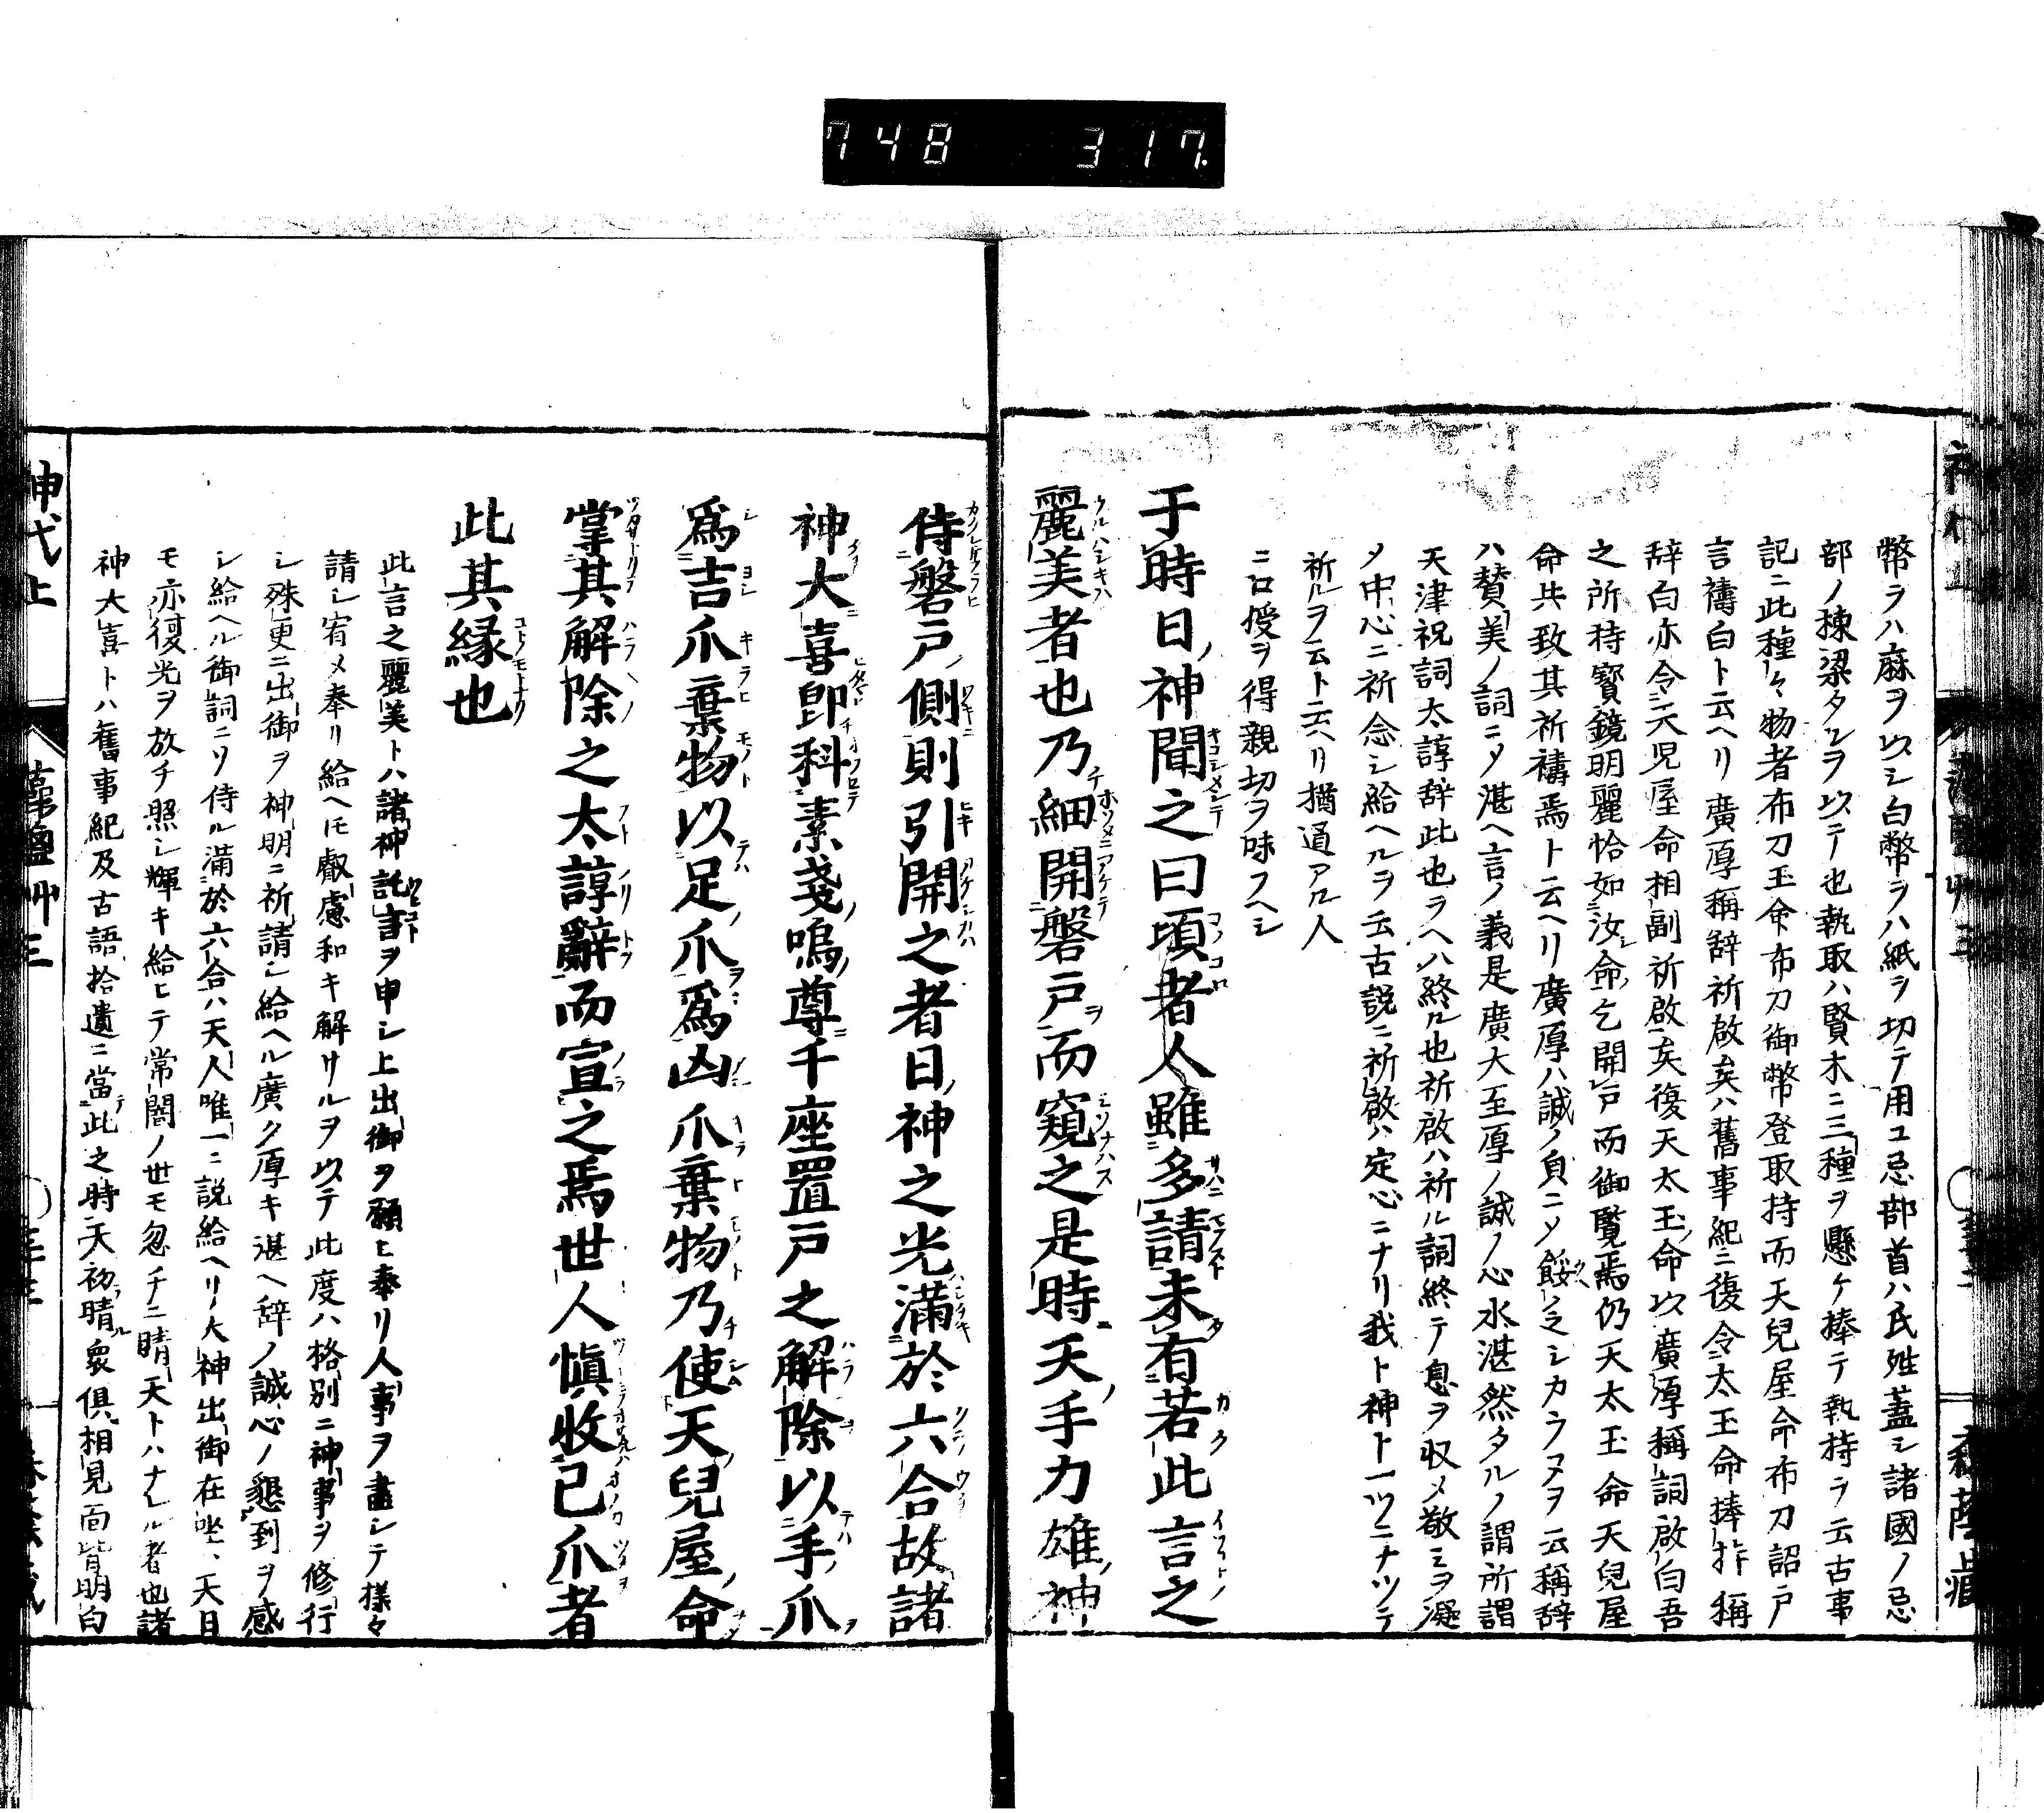 748 317
幣ヲハ麻ヲ以シ白幣ヲハ紙ヲ切テ用ユ忌部首ハ民姓蓋シ諸國ノ忌
部ノ棟梁タルヲ以テ也執取ハ賢木ニ三種ヲ懸ケ捧テ執持ヲ云古事
記ニ此種々物者布刀玉命布刀御幣登取持而天兒屋命布刀詔戸
言禱白ト云ヘリ廣厚稱辞祈啟矣ハ舊事紀ニ復令太玉命捧持稱
辞白亦令天児屋命相副祈啟矣復天太玉命以廣厚稱詞啟白吾
之所持寳鏡明麗恰如汝命乞開戸而御覧焉仍天太玉命天兒屋
命共致其祈禱焉ト云ヘリ廣厚ハ誠ノ負ニメ餒シカラヌヲ云稱辞
ハ賛美ノ詞ニメ湛ヘ言ノ義是廣大至厚ノ誠ノ心水湛然タルノ謂所謂
天津祝詞太諄辞此也ラヘハ終ル也祈啟ハ祈ル詞終テ息ヲ収メ敬ミヲ凝
メ中心ニ祈念シ給ヘルヲ云古説ニ祈啟ハ定心ニナリ我ト神トーツニナツテ
祈ルヲ云ト云ヘリ猶通アル人
ニ口授ヲ得親切ヲ味フヘシ
于時日神聞之曰頃者人雖多請未有若此言之
麗美者也乃細開磐戸而窺之是時天手力雄神
侍磐戸側則引開之者日神之光滿於六合故諸
神大喜卽科素戔嗚尊千座置戸之解除以手爪
爲吉爪棄物以足爪爲凶爪棄物乃使天兒屋命
掌其解除之太諄辭而宣之焉世人愼收已爪者
此其縁也
此言之麗美トハ諸神託言ヲ申シ上出御ヲ願ヒ奉リ人事ヲ盡シテ様々
請シ宥メ奉リ給ヘトモ叡慮和キ解サルヲ以テ此度ハ格別ニ神事ヲ修行
シ殊更ニ出御ヲ神明ニ祈請シ給ヘル廣ク厚キ湛ヘ辞ノ誠心ノ懇到ヲ感
シ給ヘル御詞ニソ侍ル滿於六合ハ天人唯一ニ説給ヘリ大神出御在坐、天日
モ亦復光ヲ放チ照シ輝キ給ヒテ常闇ノ世モ忽チニ晴天トハナレル者也諸
神大喜トハ舊事紀及古語拾遺ニ當此之時天初晴衆倶相見面皆明白
神代上 藻鹽艸三